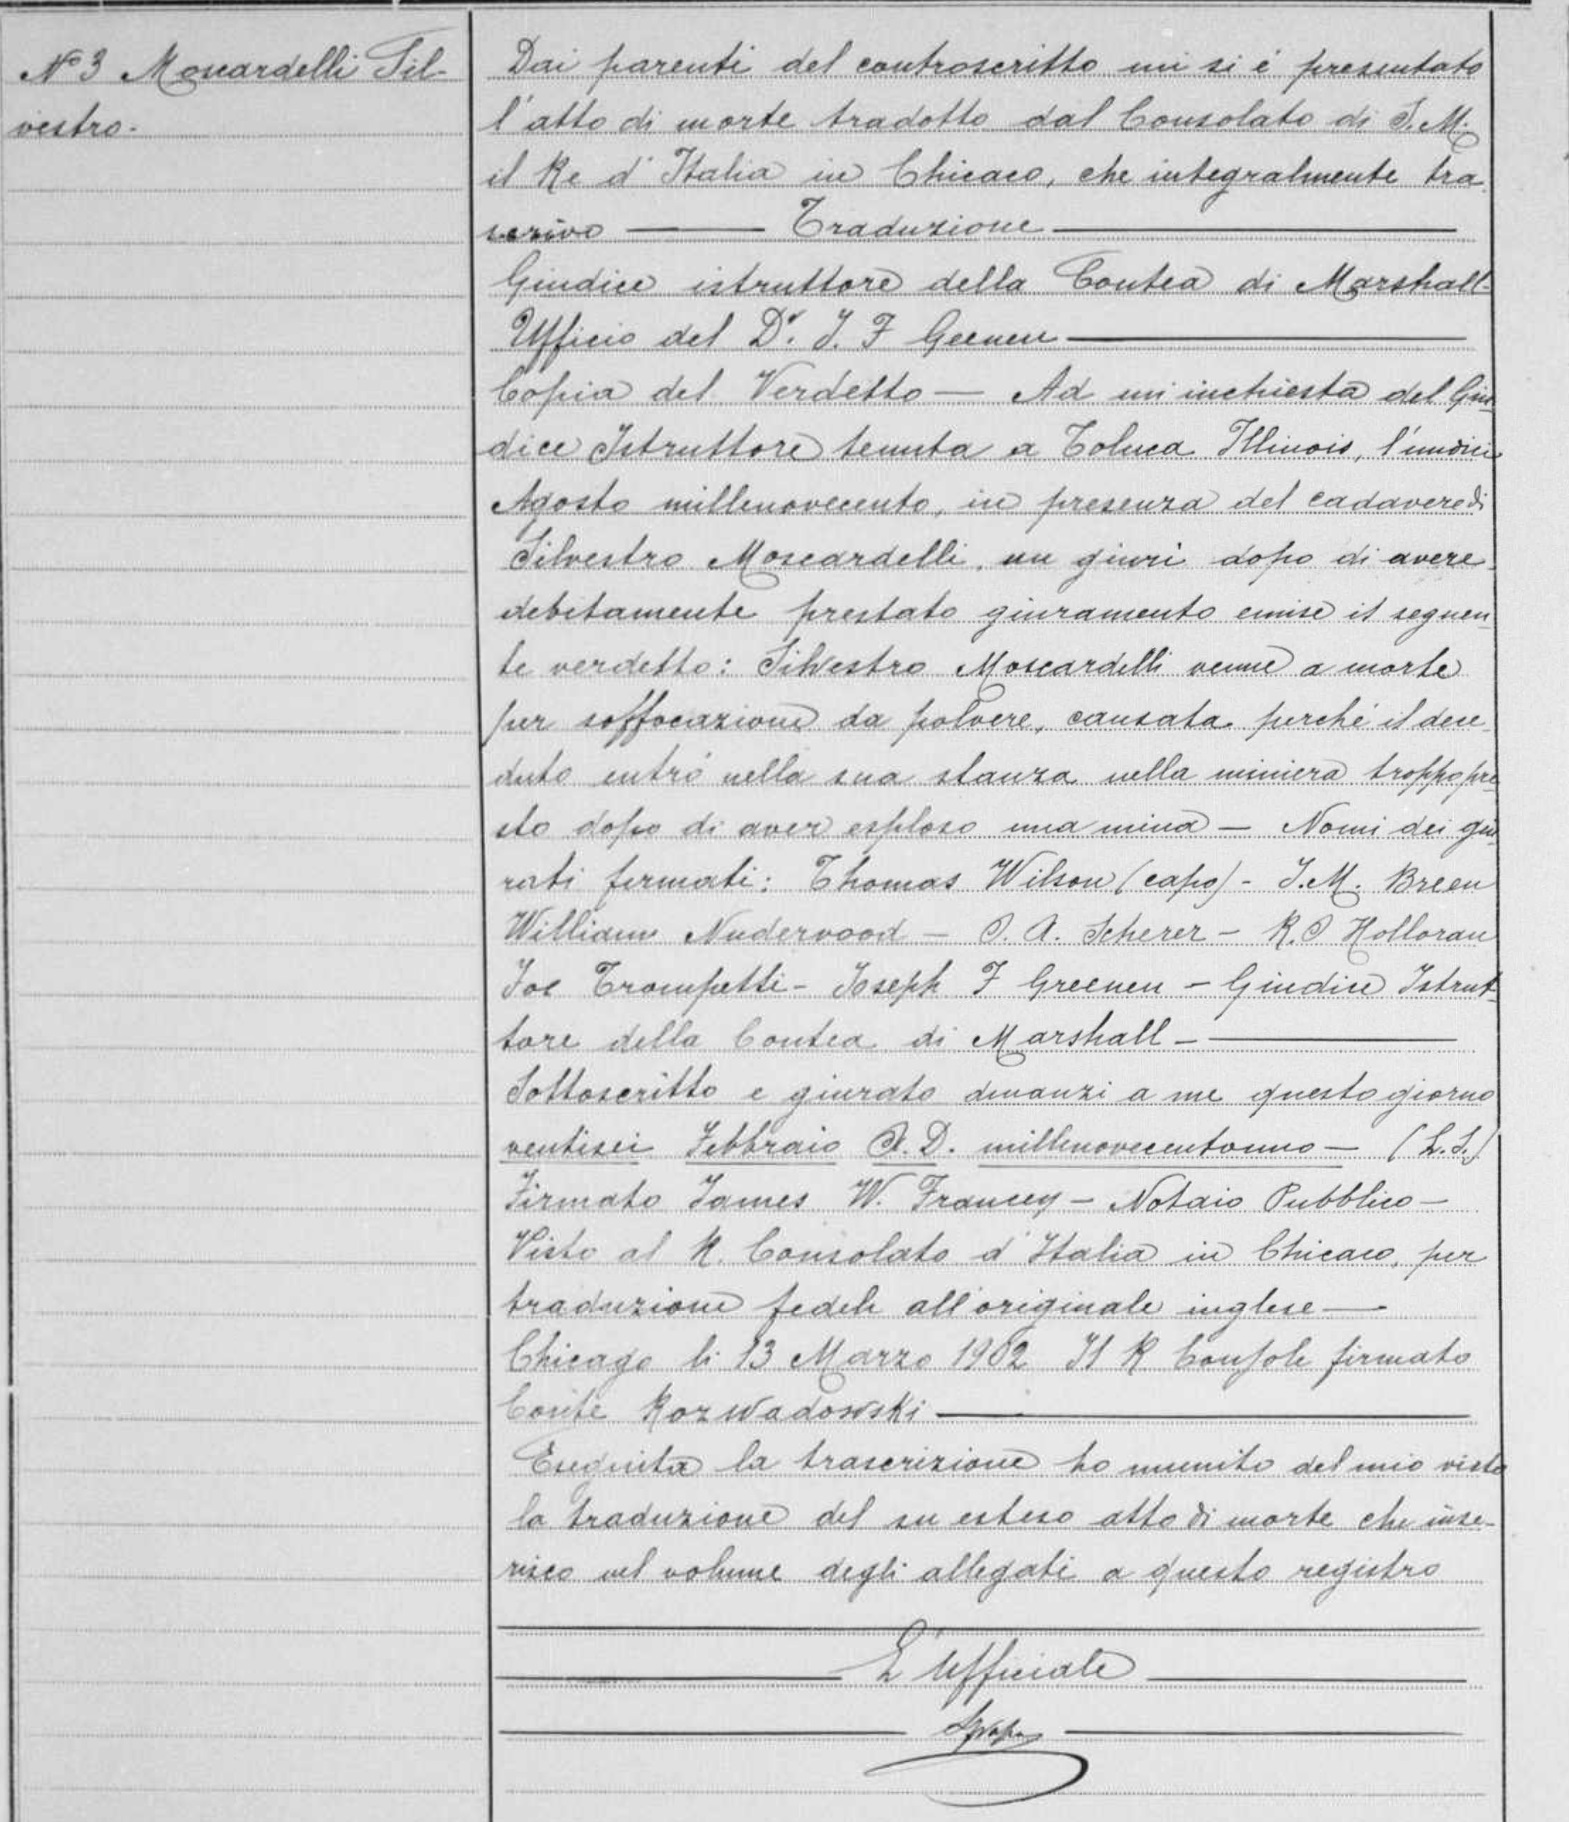 Nº 3 Moscardelli Sil-
vestro.
Dai parenti del controscritto mi si è presentato
l'atto di morte tradotto dal Consolato di S. M.
il Re d'Italia in Chicaco, che integralmente tra
scrivo — Traduzione —
Giudice istruttore della Contea di Marshall-
Ufficio del Dr. J. F Geenen —
Copia del Verdetto — Ad un inchiesta del Giu
dice Istruttore tenuta a Toluca Illinois, l'undici
Agosto millenovecento, in presenza del cadavere di
Silvestro Moscardelli, un giurì dopo di avere
debitamente prestato giuramento emise il seguen
te verdetto: Silvestro Moscardelli venne a morte
per soffocazione da polvere, causata perchè il dece
duto entrò nella sua stanza nella miniera troppo pre
sto dopo di aver esploso una mina — Nomi dei giu
rati firmati: Thomas Wilson (capo) - J. M. Breen
William Nuderwood — P. A. Scherer — R. P Holloran
Joe Trompetti - Joseph F Greenen — Giudice Istrut
tore della Contea di Marshall —
Sottoscritto e giurato dinanzi a me questo giorno
ventisei Febbraio A. D. millenovecentouno — (L. S.)
Firmato James W. Francey — Notaio Pubblico —
Visto al R. Consolato d'Italia in Chicaco, per
traduzione fedele all'originale inglese —
Chicago li 13 Marzo 1902 Il R Console firmato
Conte Rozwadowski —
Eseguita la trascrizione ho munito del mio visto
la traduzione del su esteso atto di morte che inse-
risco nel volume degli allegati a questo registro
L'Ufficiale